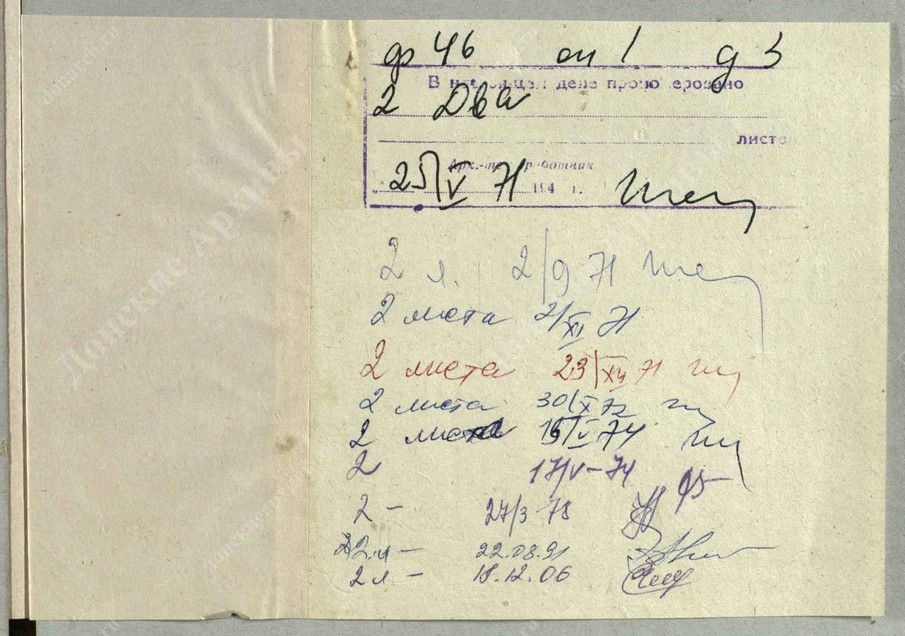 ф 46 оп 1 д 3
В настоящем деле пронумеровано
2 Два
листо
Арх.-тех. работник
25/V 71 194 г.
2 л. 2/9 71
2 листа 2/XI 71
2 листа 23/XII 71
2 листа 30/X 72
2 листа 15/V 74
2 17/V-74
2 - 27/3 78
2 л - 22.08.91
2 л. - 18.12.06
Донские Архивы